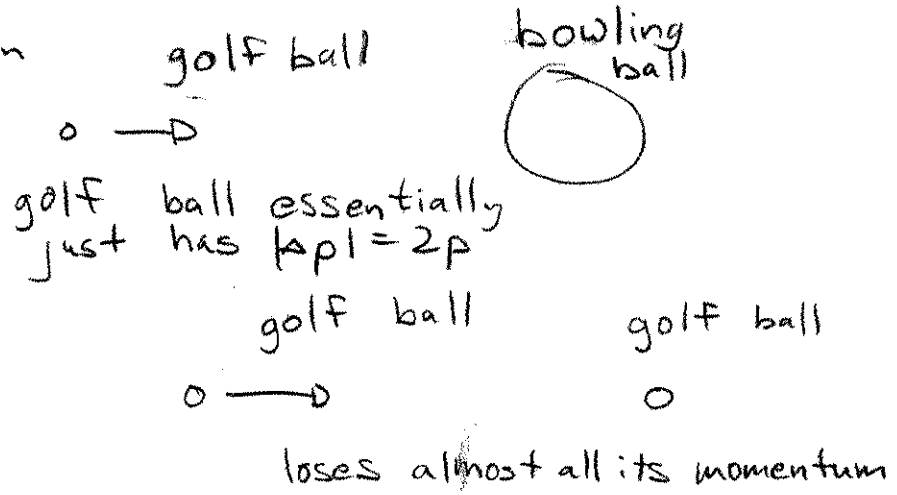 n
golf ball
bowling
ball
golf ball essentially
just has |Δp| = 2p
golf ball
golf ball
loses almost all its momentum